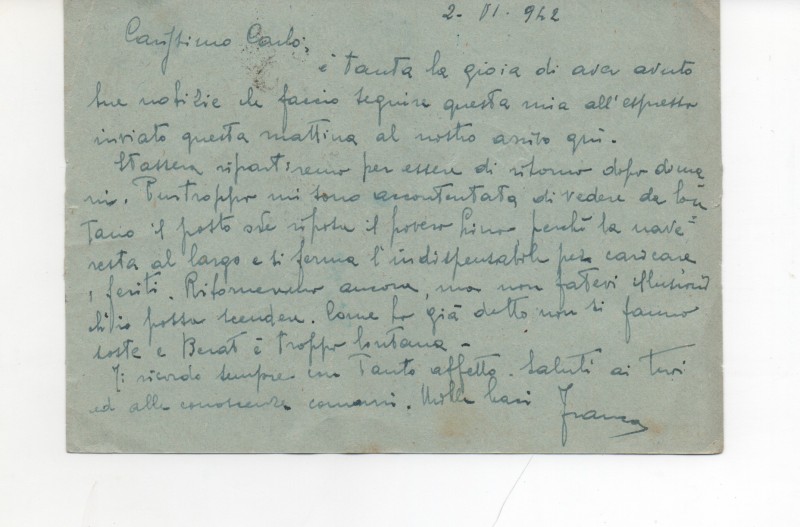 2. VI. 942
Carissimo Carlo,
è tanta la gioia di aver avuto
tue notizie che faccio seguire questa mia all'espresso
inviato questa mattina al nostro arrivo qui.
Stassera ripartiremo per essere di ritorno dopo doma
ni. Purtroppo mi sono accontentata di vedere da lon
tano il posto ove riposa il povero Lino perchè la nave
resta al largo e si ferma l'indispensabile per caricare
i feriti. Ritorneremo ancora, ma non fatevi illusioni
ch'io possa scendere. Come ho già detto non si fanno
soste e Berat è troppo lontana -
Ti ricordo sempre con tanto affetto. Saluti ai tuoi
ed alle conoscenze comuni. Mille baci
Franca